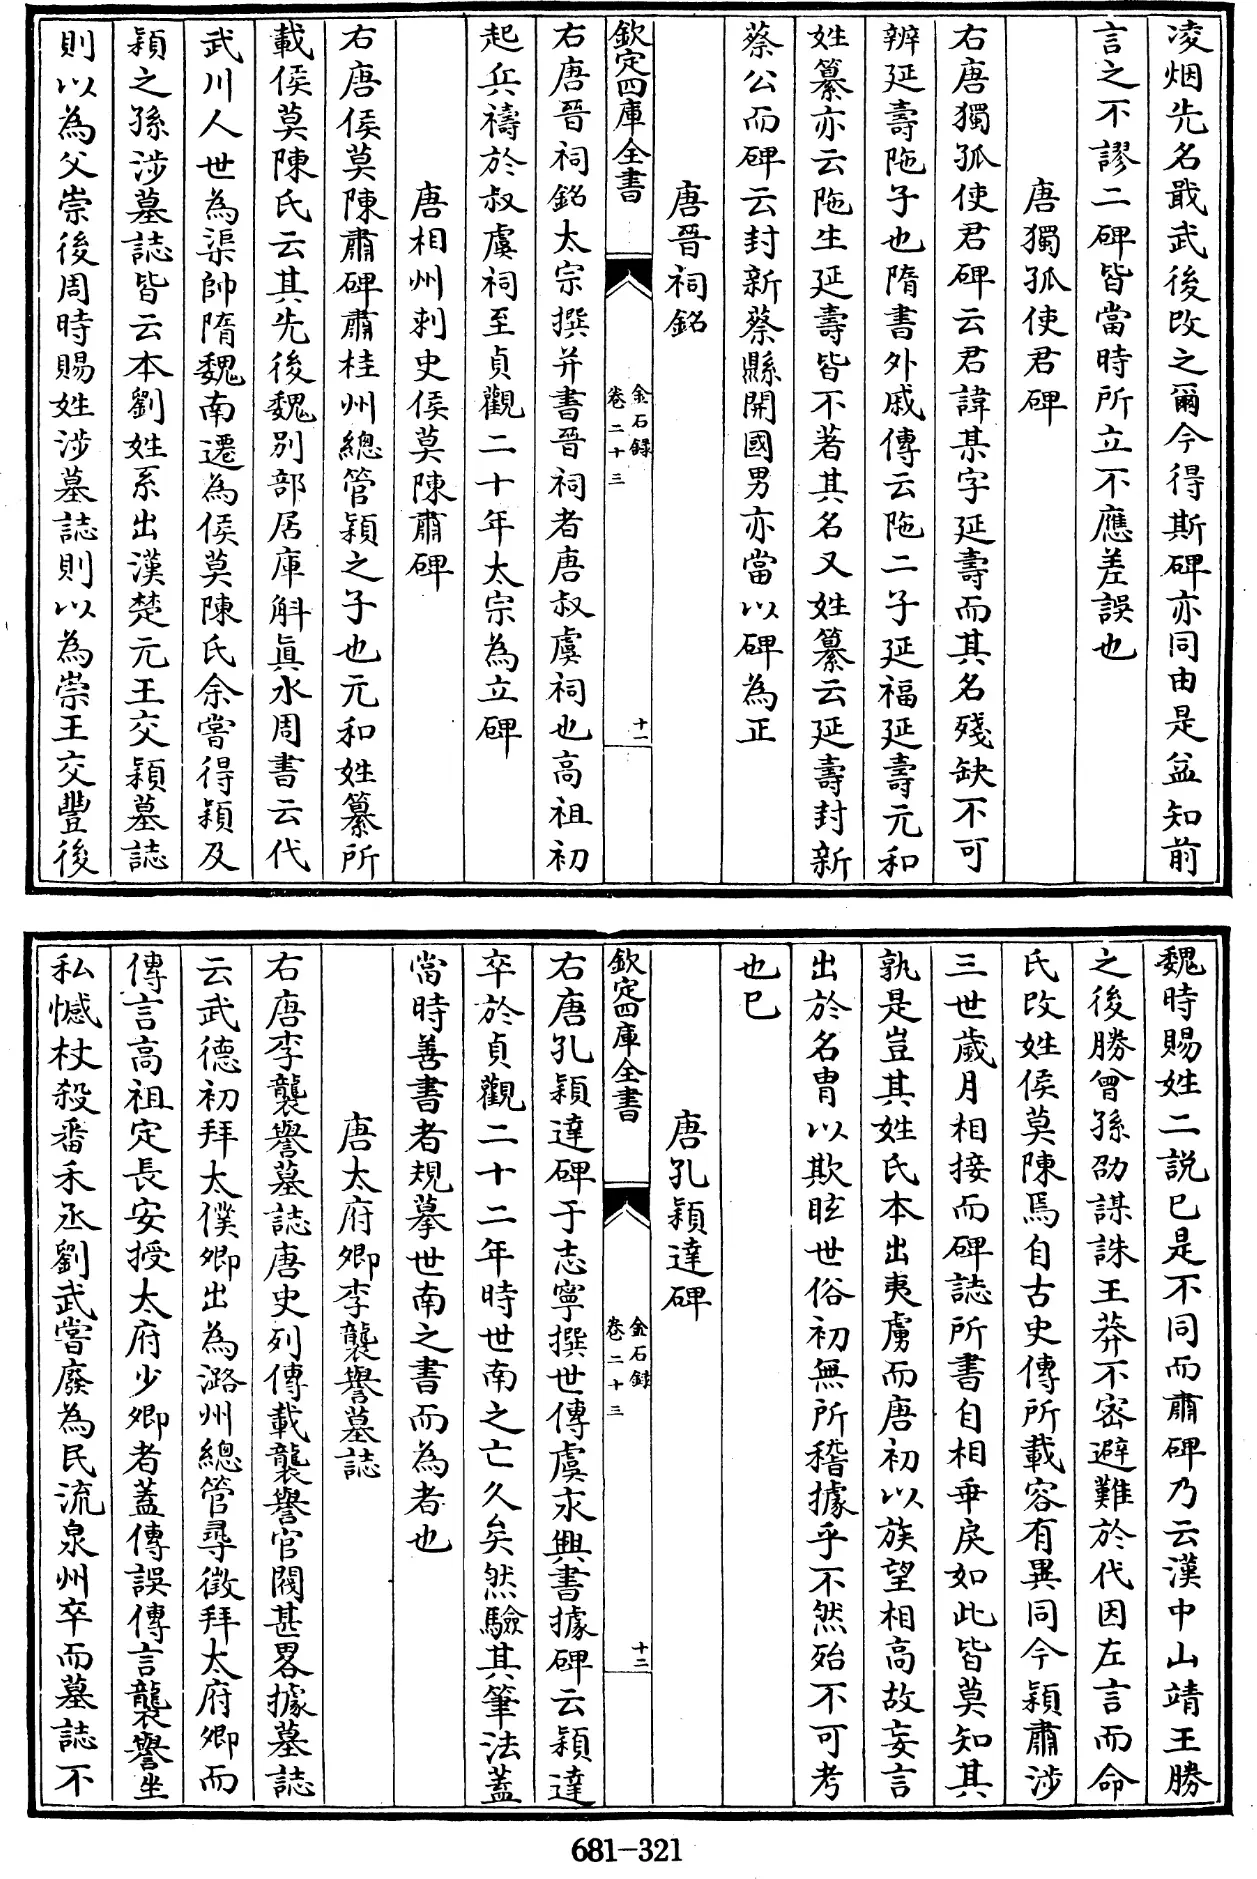 凌烟先名戢武後改之爾今得斯碑亦同由是益知前
言之不謬二碑皆當時所立不應差誤也
唐獨孤使君碑
右唐獨孤使君碑云君諱某字延壽而其名殘缺不可
辨延壽陁子也隋書外戚傳云陁二子延福延壽元和
姓纂亦云陁生延壽皆不著其名又姓纂云延壽封新
蔡公而碑云封新蔡縣開國男亦當以碑為正
唐晉祠銘
欽定四庫全書
金石録
卷二十三
十一
右唐晉祠銘太宗撰并書晉祠者唐叔虞祠也高祖初
起兵禱於叔虞祠至貞觀二十年太宗為立碑
唐相州刺史侯莫陳肅碑
右唐侯莫陳肅碑肅桂州總管穎之子也元和姓纂所
載侯莫陳氏云其先後魏別部居庫斛眞水周書云代
武川人世為渠帥隋魏南遷為侯莫陳氏余嘗得穎及
穎之孫涉墓誌皆云本劉姓系出漢楚元王交穎墓誌
則以為父崇後周時賜姓涉墓誌則以為崇王交豐後
魏時賜姓二説已是不同而肅碑乃云漢中山靖王勝
之後勝曾孫劭謀誅王莽不密避難於代因左言而命
氏改姓侯莫陳焉自古史傳所載容有異同今穎肅涉
三世歲月相接而碑誌所書自相乖戾如此皆莫知其
孰是豈其姓氏本出夷虜而唐初以族望相高故妄言
出於名胄以欺眩世俗初無所稽據乎不然殆不可考
也已
唐孔穎達碑
欽定四庫全書
金石録
卷二十三
十二
右唐孔穎達碑于志寧撰世傳虞永興書據碑云穎達
卒於貞觀二十二年時世南之亡久矣然驗其筆法蓋
當時善書者規摹世南之書而為者也
唐太府卿李襲譽墓誌
右唐李襲譽墓誌唐史列傳載襲譽官閥甚畧據墓誌
云武德初拜太僕卿出為潞州總管尋徵拜太府卿而
傳言高祖定長安授太府少卿者蓋傳誤傳言襲譽坐
私憾杖殺番禾丞劉武嘗廢為民流泉州卒而墓誌不
681-321